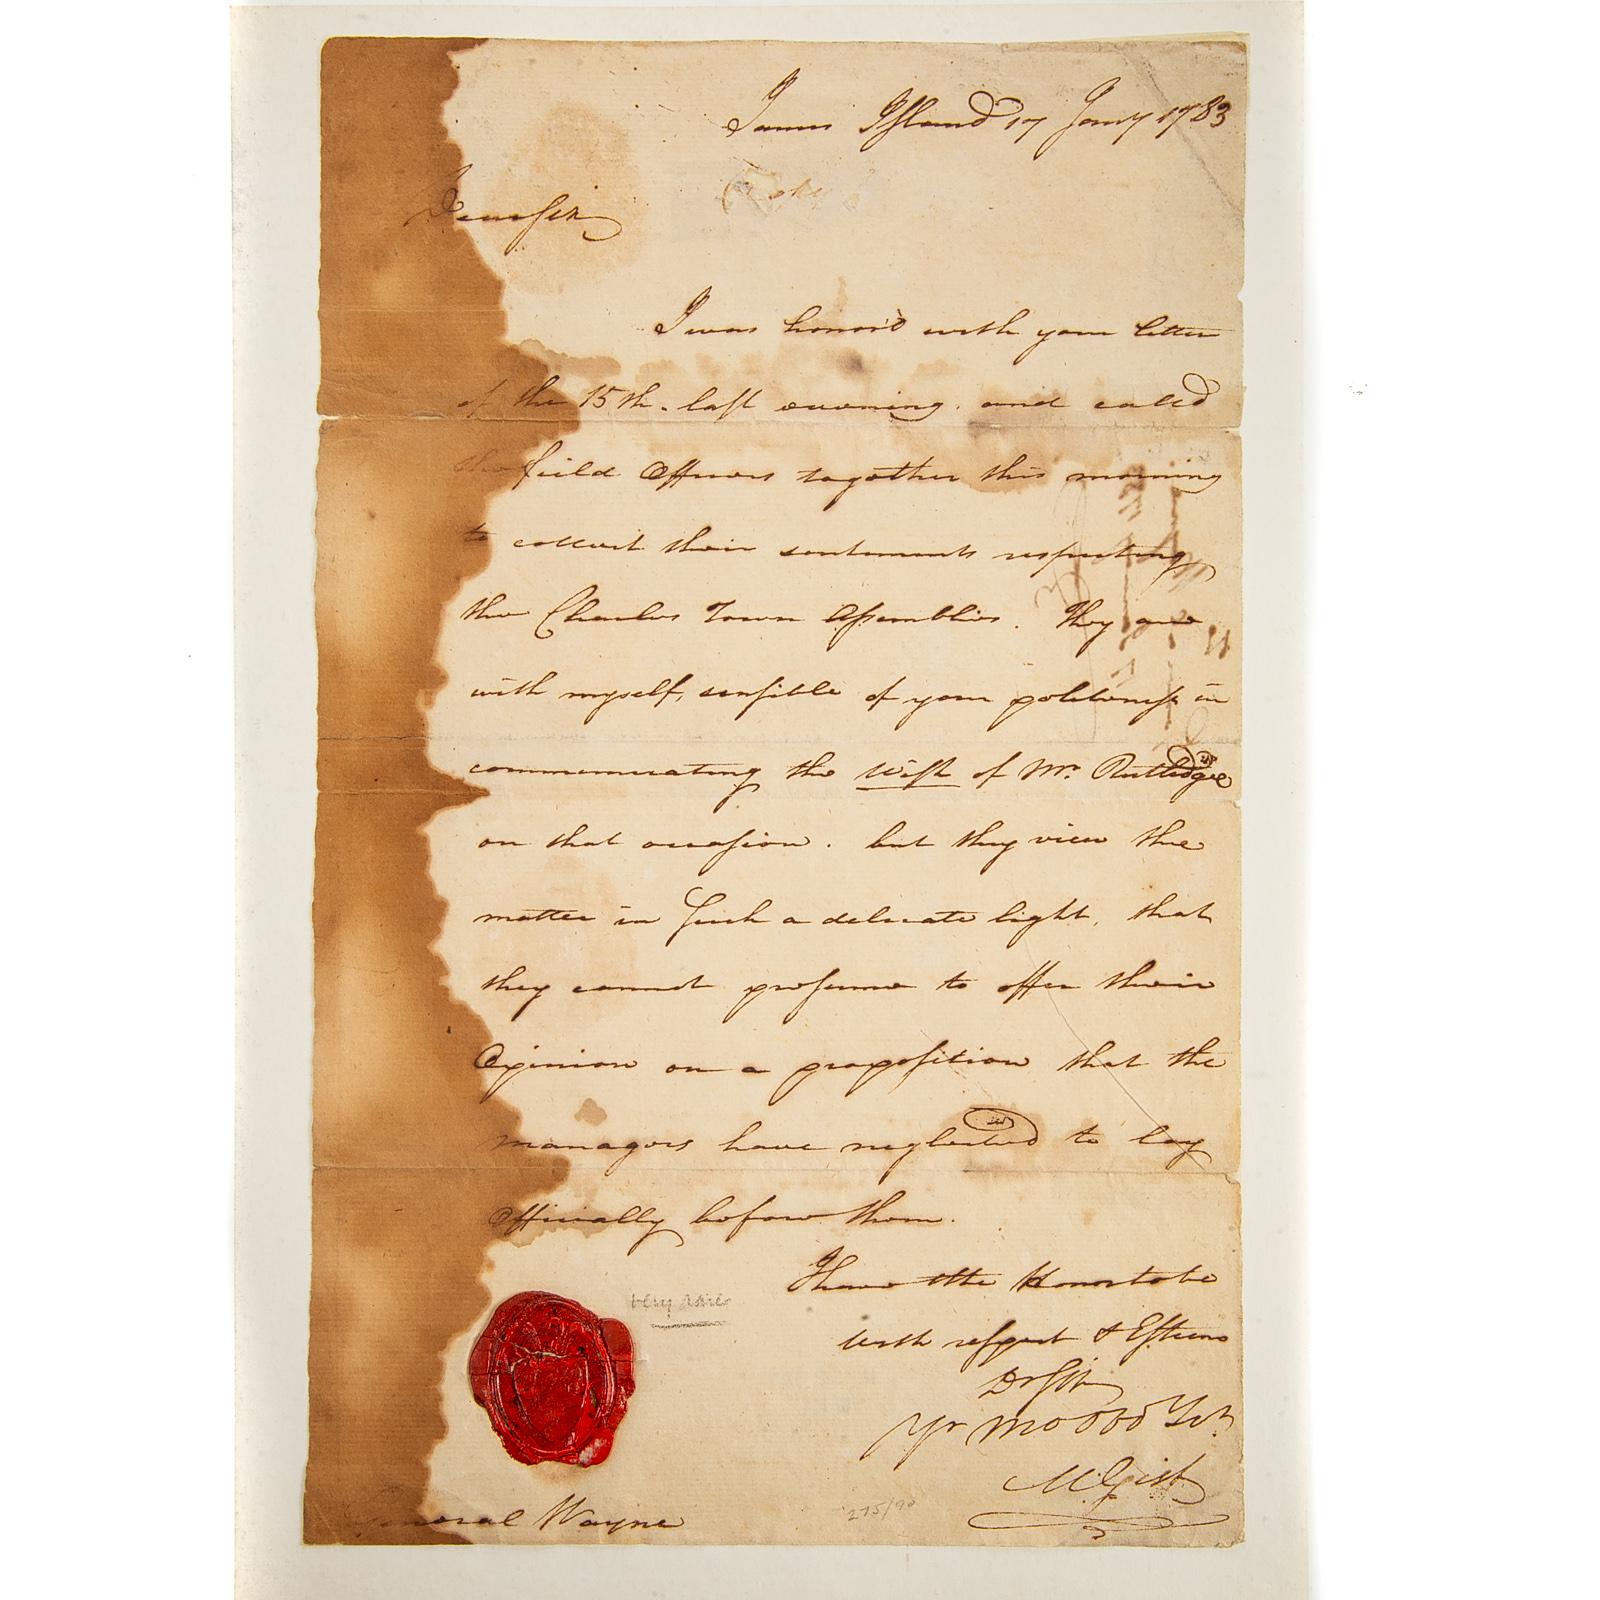 James Island 17 Jany 1783
Dear sir
I was honor'd with your letter
of the 15th. last evening. and called
the field Officers together this morning
to collect their sentements respecting
the Charles Town Assemblies. They are
with myself, sensible of your politeness in
communicating the wish of Mr. Rutledge
on that occasion. but they view the
matter in Such a delicate light, that
they cannot presume to offer their
Opinion on a proposition that the
managers have neglected to lay
Officially before them.
I have the Honor to be
with respect & Esteem
Dr Sir
Yr Mo Obd Svt
M. Gist
very rare
General Wayne
275/90